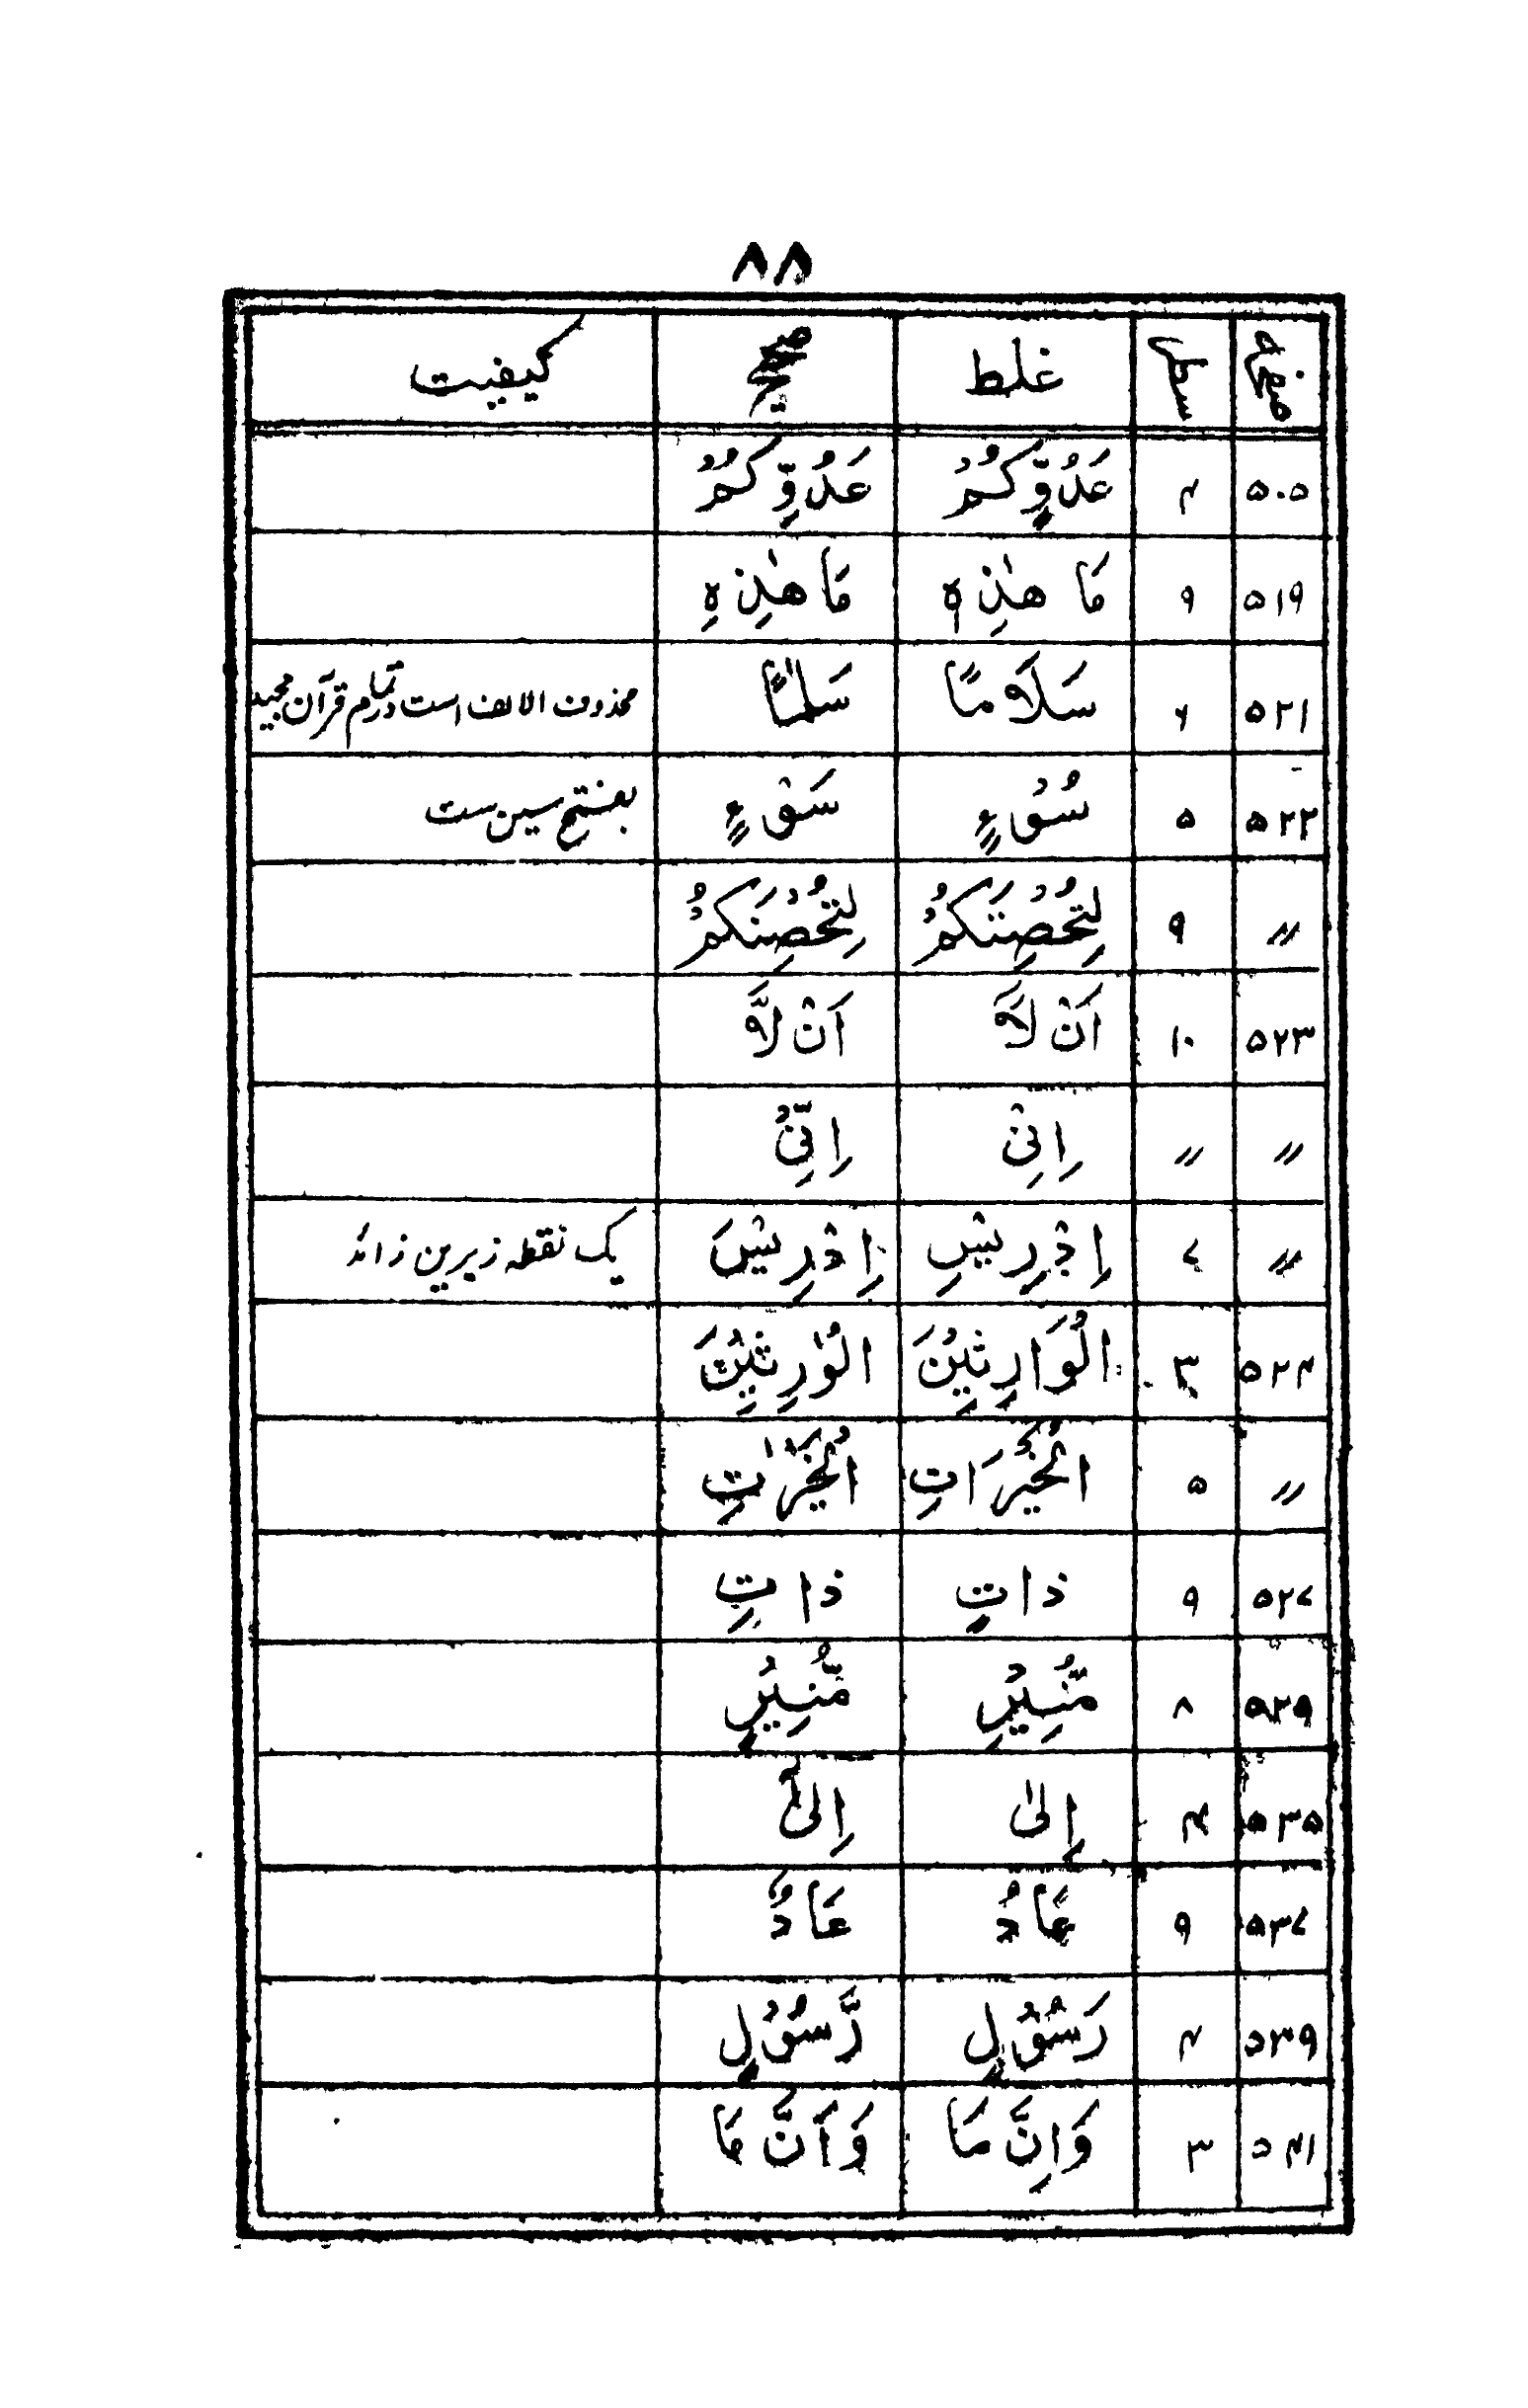 ۸۸
صفحہ سطر غلط صحیح کیفیت
۵۰۵ ۴ عَدُوٍّكُمْ عَدُوِّكُمْ
۵۱۹ ۹ مَا هٰذِهٖ مَا هٰذِهِ
۵۲۱ ۶ سَلَامًا سَلٰمًا محذوف الالف است در تمام قرآن مجید
۵۲۲ ۵ سُوْءٍ سَوْءٍ بفتح سین ست
〃 ۹ لِتُحْصِتَكُمْ لِتُحْصِنَكُمْ
۵۲۳ ۱۰ اَنْ لَا اَنْ لَّا
〃 〃 اِنِیْ اِنِّیْ
〃 ۷ اِدْرِیْسِ اِدْرِیْسَ یک نقطہ زیرین زائد
۵۲۴ ۳ الْوَارِثِيْنَ الْوٰرِثِيْنَ
〃 ۵ الْخَيْرَاتِ الْخَيْرٰتِ
۵۲۷ ۹ ذاتٍ ذاتِ
۵۲۹ ۸ مُّنِيْرِ مُّنِيْرٍ
۵۳۵ ۴ اِلٰی اِلٰٓی
۵۳۷ ۹ عَادُ عَادٌ
۵۳۹ ۴ رَسُوْلٍ رَّسُوْلٍ
۵۴۱ ۳ وَاِنَّ مَا وَاَنَّ مَا